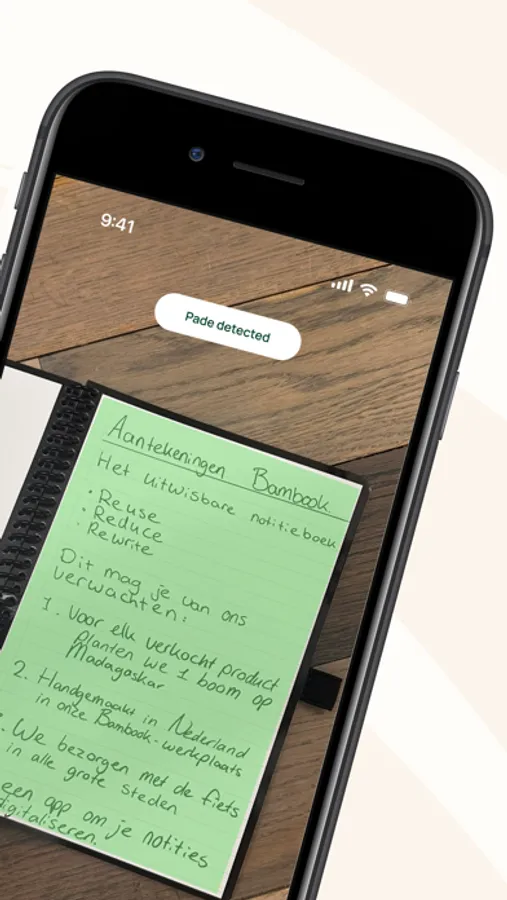 9:41
Pade detected
Aantekeningen Bambook
Het uitwisbare notitieboek
• Reuse
• Reduce
• Rewrite
Dit mag je van ons
verwachten:
1. Voor elk verkocht product
planten we 1 boom op
Madagaskar
2. Handgemaakt in Nederland
in onze Bambook-werkplaats
. We bezorgen met de fiets
in alle grote steden
een app om je notities
digitaliseren.